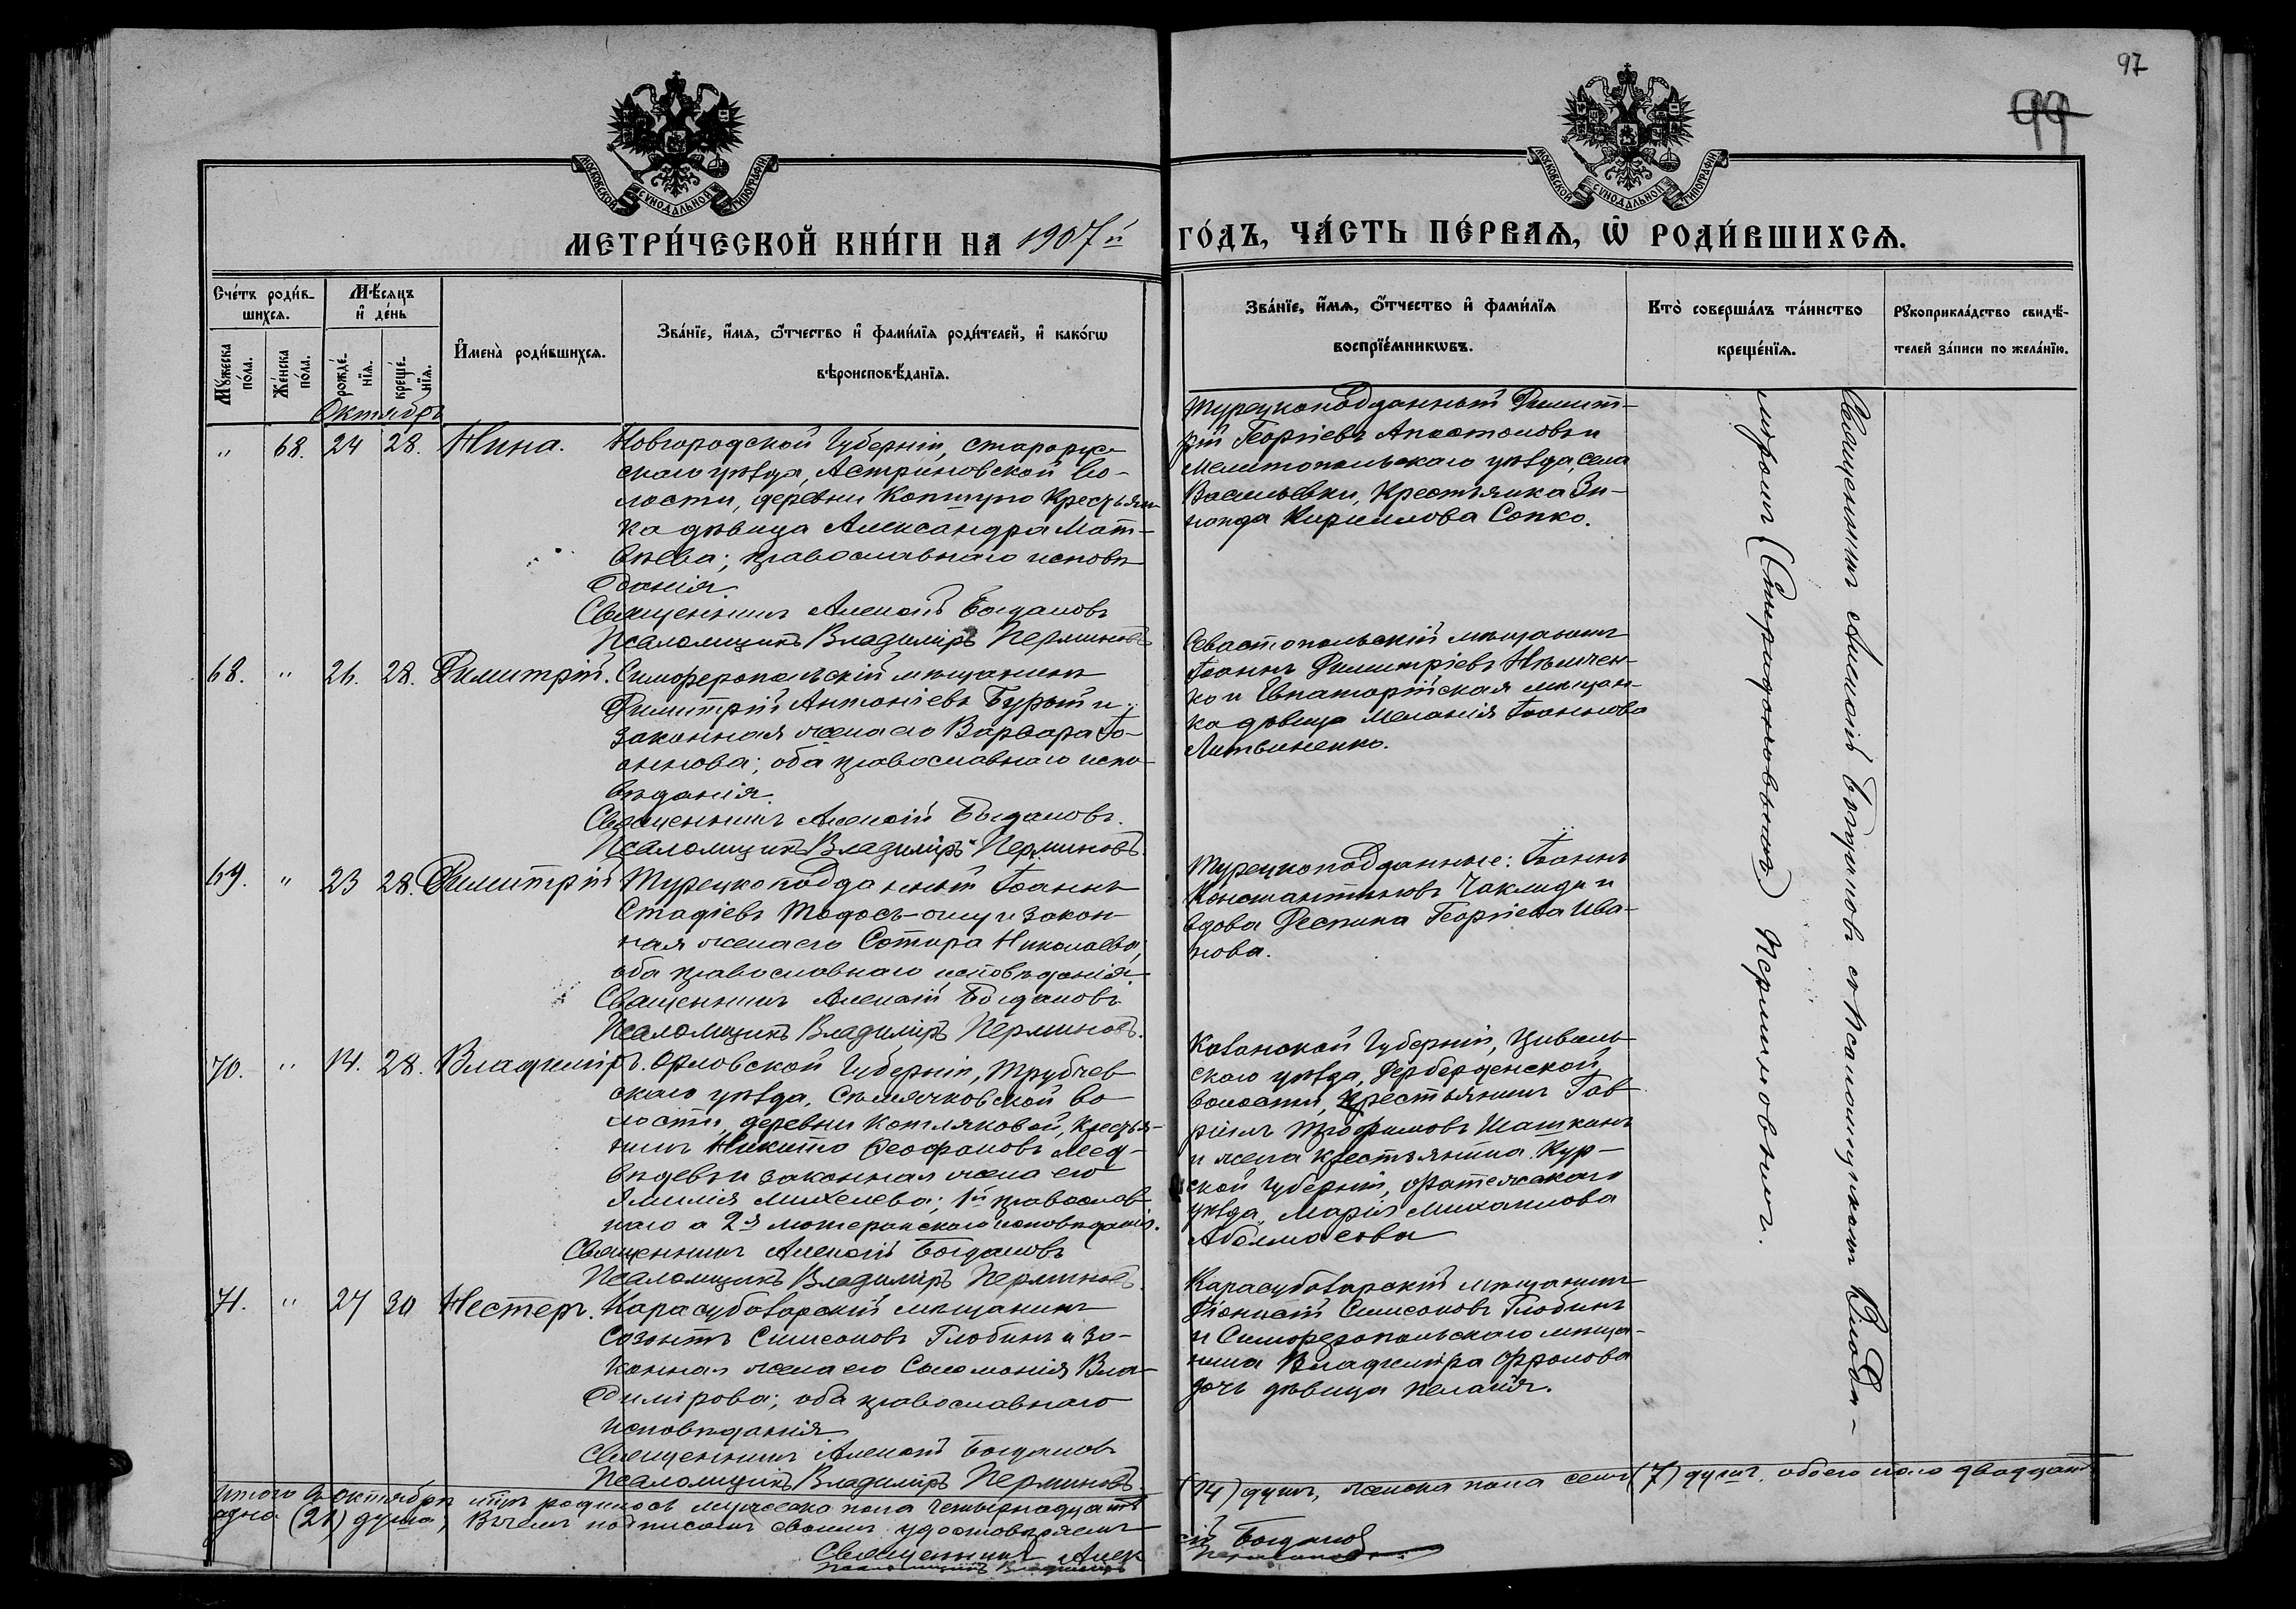 97
99
МОСКОВСКОЙ СѴНОДАЛЬНОЙ ТИПОГРАФІИ
МОСКОВСКОЙ СѴНОДАЛЬНОЙ ТИПОГРАФІИ
МЕТРИ́ЧЕСКОЙ КНИ́ГИ НА 1907й ГО́ДЪ, ЧА́СТЬ ПЕ́РВАѦ, Ѡ҆ РОДИ́ВШИХСѦ.
Сче́тъ роди́в-
шихсѧ.
Мѣ́сѧцъ
и҆ де́нь
Мꙋ́жеска
по́ла.
Же́нска
по́ла.
рожде́-
нїѧ.
креще́-
нїѧ.
И҆мена̀ роди́вшихсѧ.
Зва́нїе, и҆́мѧ, ѻ҆́тчество и҆ фами́лїѧ роди́телей, и҆ како́гѡ
вѣроисповѣ́данїѧ.
Зва́нїе, и҆́мѧ, ѻ҆́тчество и҆ фами́лїѧ
воспрїе́мникѡвъ.
Кто̀ соверша́лъ та́инство
креще́нїѧ.
Рꙋкоприкла́дство свидѣ́-
телей за́писи по жела́нїю.
Октябрь
" 68. 24 28. Нина. Новгородской Губерніи, старорус-
скаго уѣзда, Астриловской во-
лости, деревни Крестьян-
ка дѣвица Александра Мат-
вѣева; православнаго исповѣ-
данія.
Священникъ Алексій Богдановъ
Псаломщикъ Владиміръ Перминовъ
Турецкоподданный Димит-
рій Георгіевъ Апостоловъ и
Мелитопольскаго уѣзда, села
Васильевки, Крестьянка Зи-
наида Кириллова Сопко.
68. " 26. 28. Димитрій. Симферопольскій мѣщанинъ
Димитрій Антоніевъ Бурый и
законная жена его Варвара Іо-
аннова; оба православнаго испо-
вѣданія.
Священникъ Алексій Богдановъ.
Псаломщикъ Владиміръ Перминовъ.
Севастопольскій мѣщанинъ
Іоаннъ Димитріевъ Нѣмчен-
ко и Евпаторійская мѣщан-
ка дѣвица Меланія Іоаннова
Литвиненко.
69. " 23 28. Димитрій Турецкоподданный Іоаннъ
Стадіевъ Тодосъ-оглу и закон-
ная жена его Сотира Николаева;
оба православнаго исповѣданія
Священникъ Алексій Богдановъ
Псаломщикъ Владиміръ Перминовъ.
Турецкоподданные: Іоаннъ
Константиновъ Чаклиди и
вдова Деспина Георгіева Ива-
нова.
70. " 14. 28. Владиміръ. Орловской Губерніи, Трубчев
скаго уѣзда, Сѣмячковской во
лости, деревни Котляковой, Крестья-
нинъ Никита Феофановъ Мед-
вѣдевъ и законная жена его
Эмилія Михелева; 1й православ
наго а 2я лютеранскаго исповѣданія.
Священникъ Алексій Богдановъ
Псаломщикъ Владиміръ Перминовъ.
Казанской Губерніи, Цивиль
скаго уѣзда,
волости, крестьянинъ Гав
риилъ Трофимовъ Шашкинъ
и жена крестьянина Кур-
ской Губерніи, Фатежскаго
уѣзда, Марія Михаилова
71. " 27 30 Несторъ. Карасубазарскій мѣщанинъ
Созонтъ Симеоновъ Глобинъ и за-
конная жена его Соломонія Вла-
димірова; оба православнаго
исповѣданія
Священникъ Алексій Богдановъ
Псаломщикъ Владиміръ Перминовъ.
Карасубазарскій мѣщанинъ
Діонисій Симеоновъ Глобинъ
и Симферопольскаго мѣща-
нина Владиміра Фролова
дочь дѣвица Пелагія.
Священникъ Алексій Богдановъ со псаломщикомъ Влади-
міромъ (Спиридоновымъ) Перминовымъ.
Итого въ октябрѣ м-цѣ родилось мужеска пола четырнадцать (14) душъ, женска пола семь (7) душъ, обоего пола двадцать
одна (21) душа; въ чемъ подписомъ своимъ удостовѣряемъ
Священникъ Алексій Богданов
Псаломщикъ Владиміръ Перминовъ.